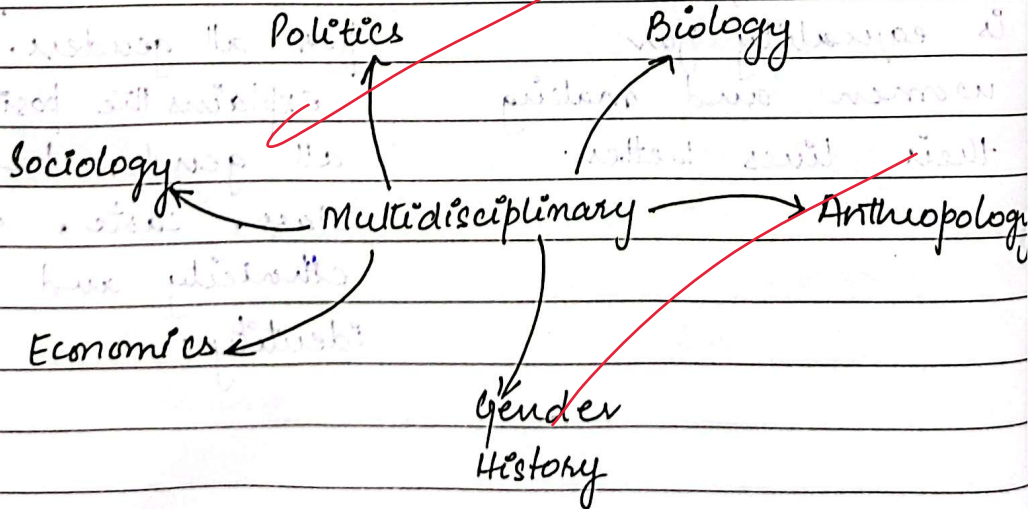 Politics
Biology
Sociology
Multidisciplinary
Anthropology
Economics
Gender
History